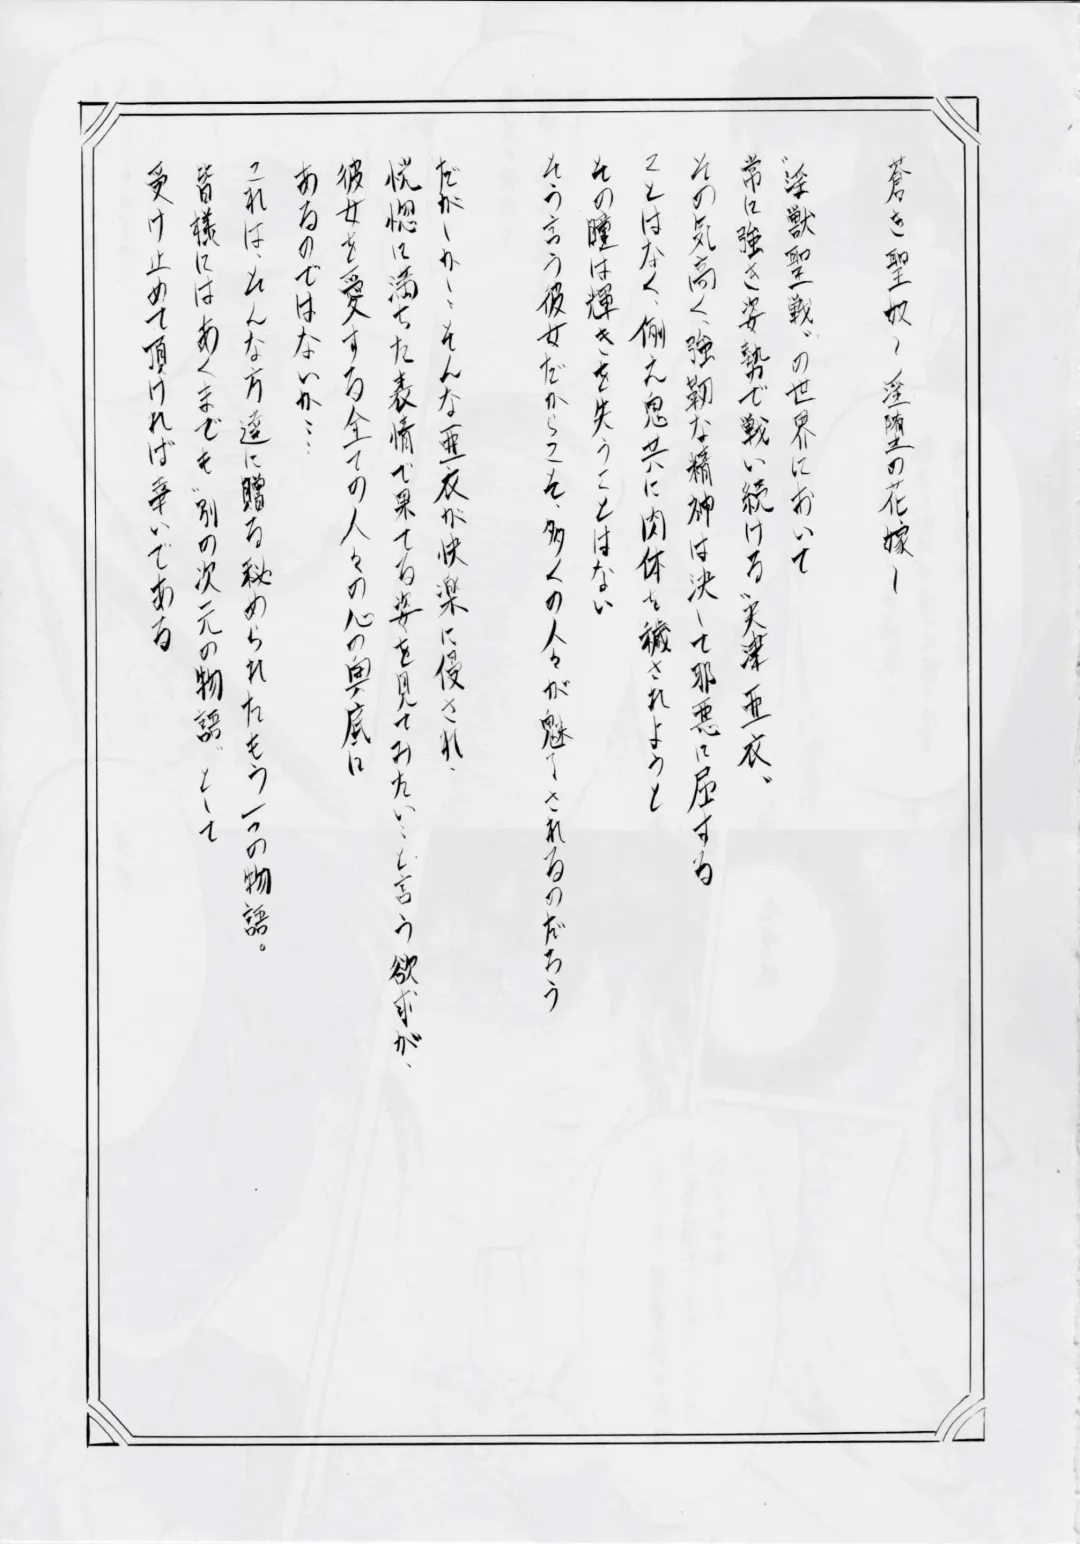 蒼き聖奴～淫堕の花嫁～
〝淫獣聖戦〟の世界において
常に強き姿勢で戦い続ける〝天津亜衣〟
その気高く、強靭な精神は決して邪悪に屈する
ことはなく、例え鬼共に肉体を穢されようと
その瞳は輝きを失うことはない
そう言う彼女だからこそ、多くの人々が魅了されるのだろう
だがしかし…そんな亜衣が快楽に侵され、
恍惚に満ちた表情で果てる姿を見ておたい…と言う欲求が、
彼女を愛する全ての人々の心の奥底に
あるのではないか…
これは、そんな方達に贈る秘められたもう一つの物語。
皆様にはあくまでも〝別の次元の物語〟として
受け止めて頂ければ幸いである